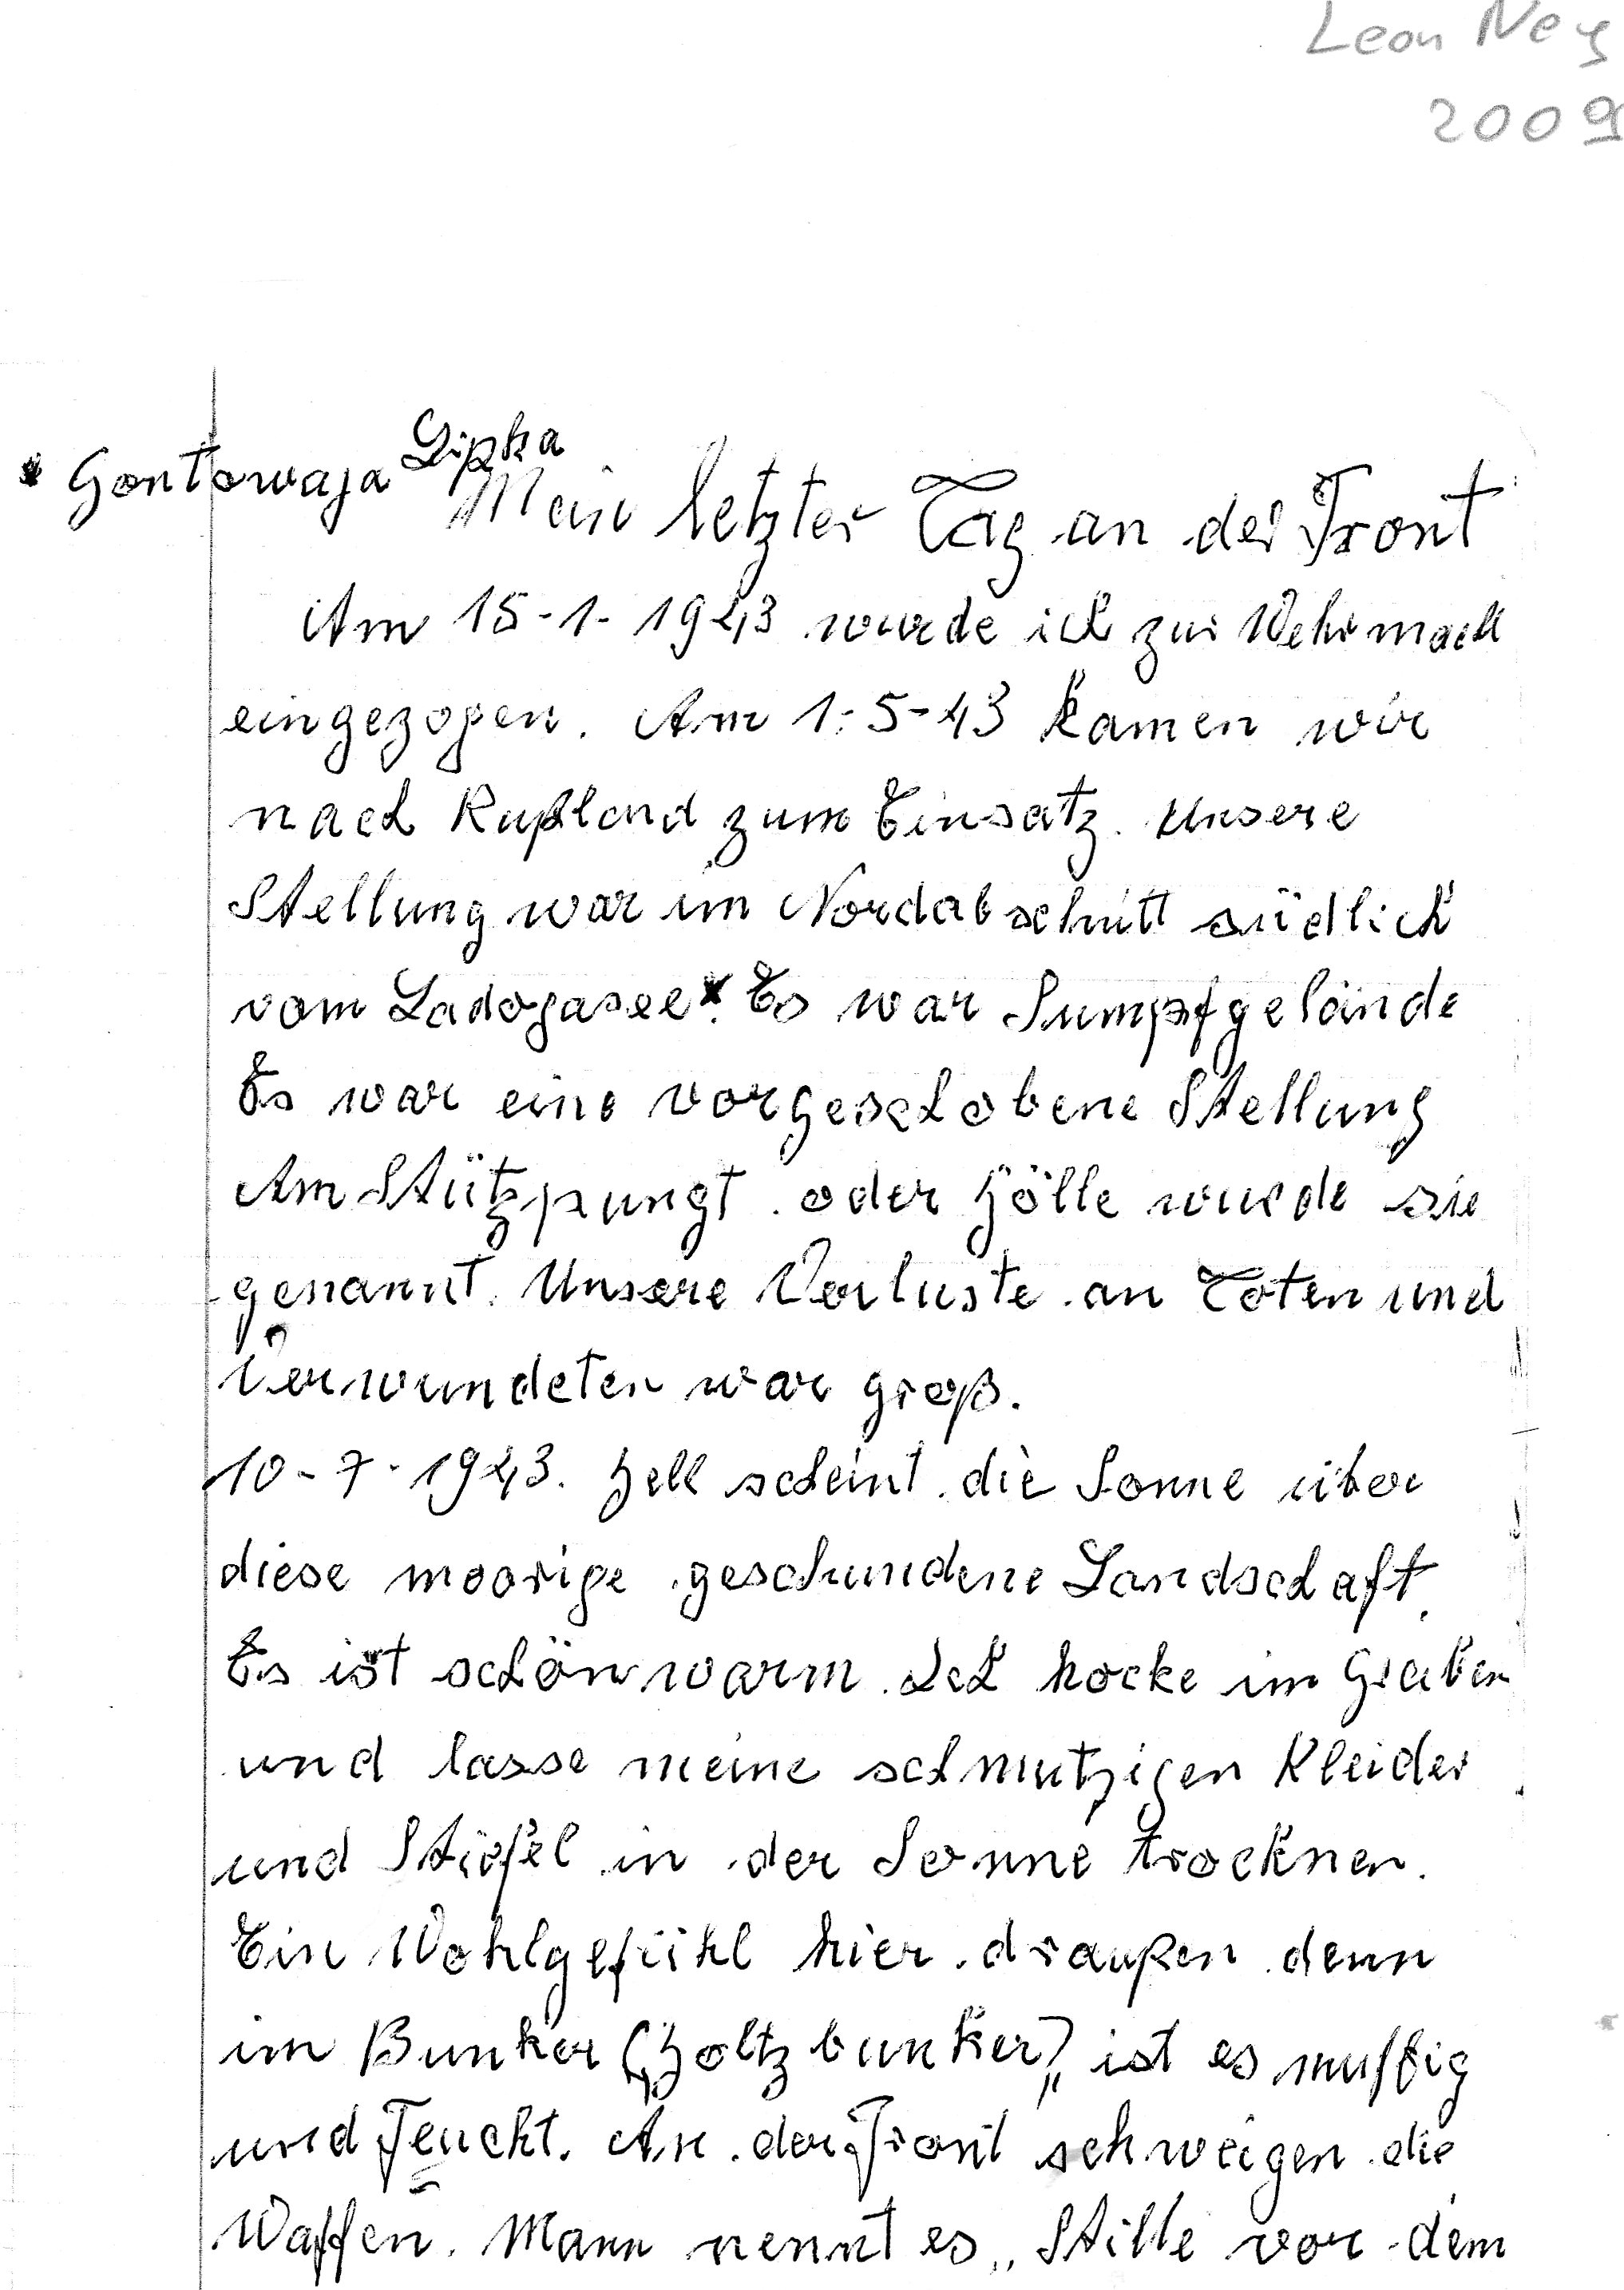 Leon Ney
2009
* Gontowaja Lipka
Mein letzter Tag an der Front
Am 15-1-1943 wurde ich zur Wehrmach
eingezogen. Am 1-5-43 kamen wir
nach Rußland zum Einsatz. Unsere
Stellung war im Nordabschnitt südlich
vom Ladogasee*. Es war Sumpfgelände
Es war eine vorgeschobene Stellung
Am Stützpungt oder Hölle wurde sie
genannt. Unsere Verluste an Toten und
Verwundeten war groß.
10-7-1943. Hell scheint die Sonne über
diese moorige geschundene Landschaft.
Es ist schön warm. Ich hocke im Graben
und lasse meine schmutzigen Kleider
und Stiefel in der Sonne trocknen.
Ein Wohlgefühl hier draußen denn
im Bunker (Holtzbunker) ist es muffig
und Feucht. An der Front schweigen die
Waffen. Mann nennt es „Stille vor dem